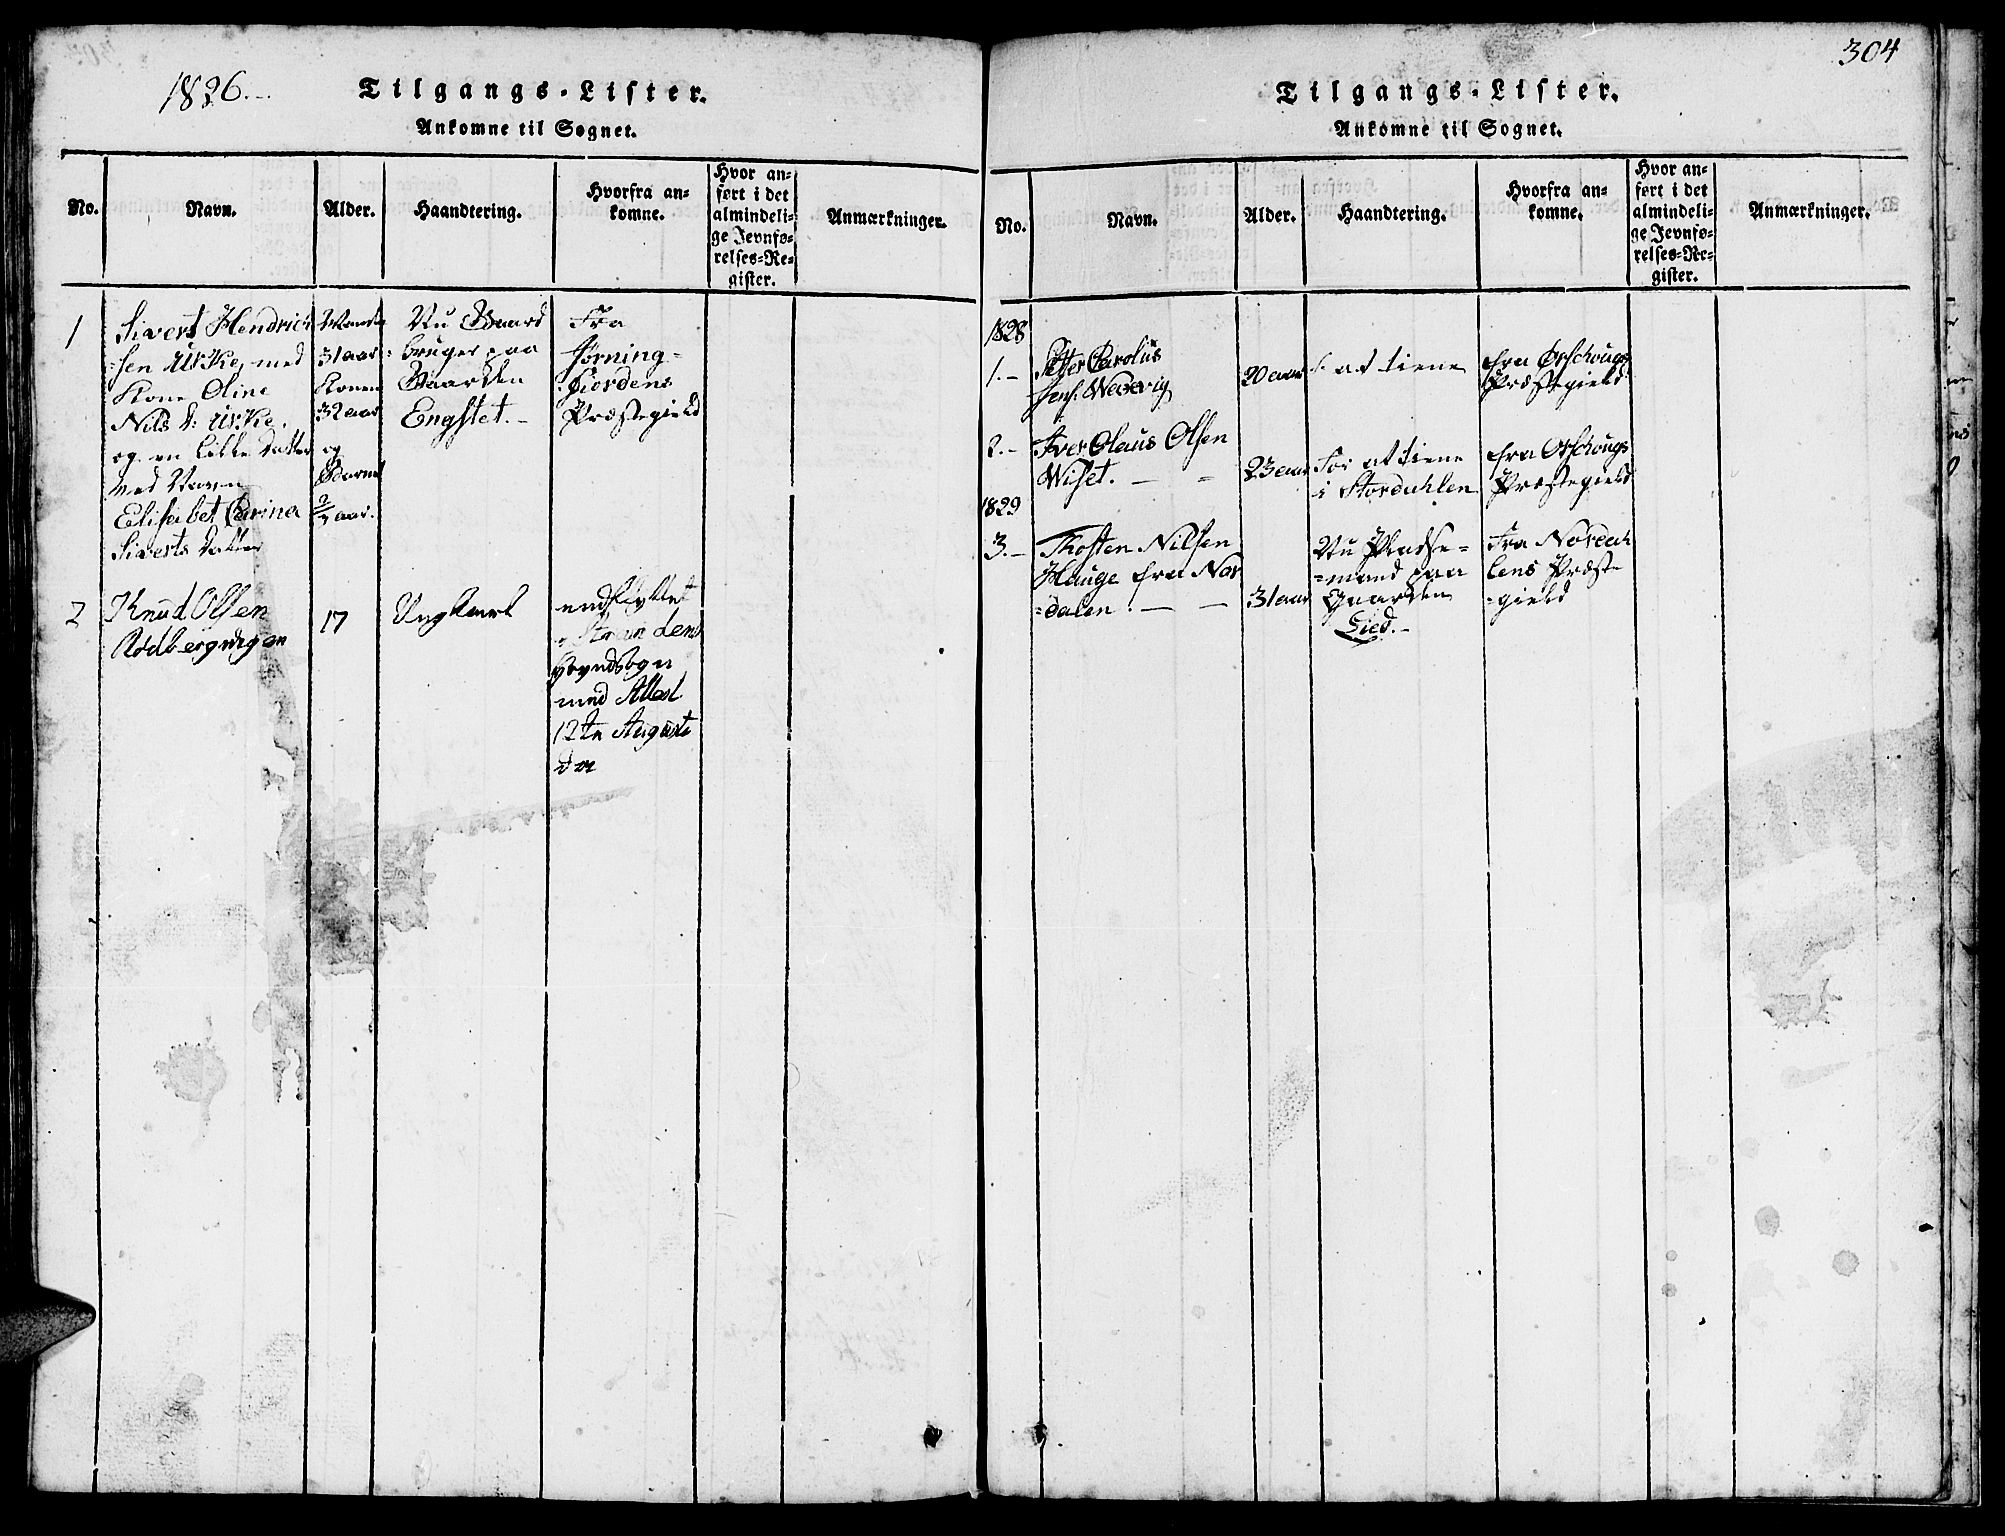 1826.-
Tilgangs-Lister.
Ankomne til Sognet.
No.
Navn.
Alder.
Haandtering.
Hvorfra an-
komne.
Hvor an-
ført i det
almindeli-
ge Jevnfø-
relses-Re-
gister.
Anmærkninger.
1
Sivert Hendrich
=sen Urke, med
Kone Oline
Nils d: Urke.
og en liden datter
ved Navn
Elisabet Carina
Siverts datter
31 aar
Konen
32 aar
og
Barnet
2/7 aar.
Nu Gaard
bruger paa
Gaarden
Engstet.-
Fra
Jørning=
fiordens
Præstegield
2
Knud Olsen
Rødbergvigen
17
Ungkarl
indflyttet
Prvndsogn
med Attest
12te Augusti
304
Tilgangs-Lister.
Ankomne til Sognet.
No.
Navn.
Alder.
Haandtering.
Hvorfra an-
komne.
Hvor an-
ført i det
almindeli-
ge Jevnfø-
relses-Re-
gister.
Anmærkninger.
1828
1.-
Petter Carolus
20 aar
at tiene
fra Ørschougs
Præstegield
2.-
Iver Olaus Olsen
Wiset. -
23 aar
For at tiene
i Stordahlen
fra Ørschougs
Præstegield
1829
3.-
Thosten Nilsen
Hauge fra Nor
=dalen. - -
31 aar
Nu Pladse=
=mand paa
Gaarden
Lied.-
Fra Nordah
lens Præste
=gield